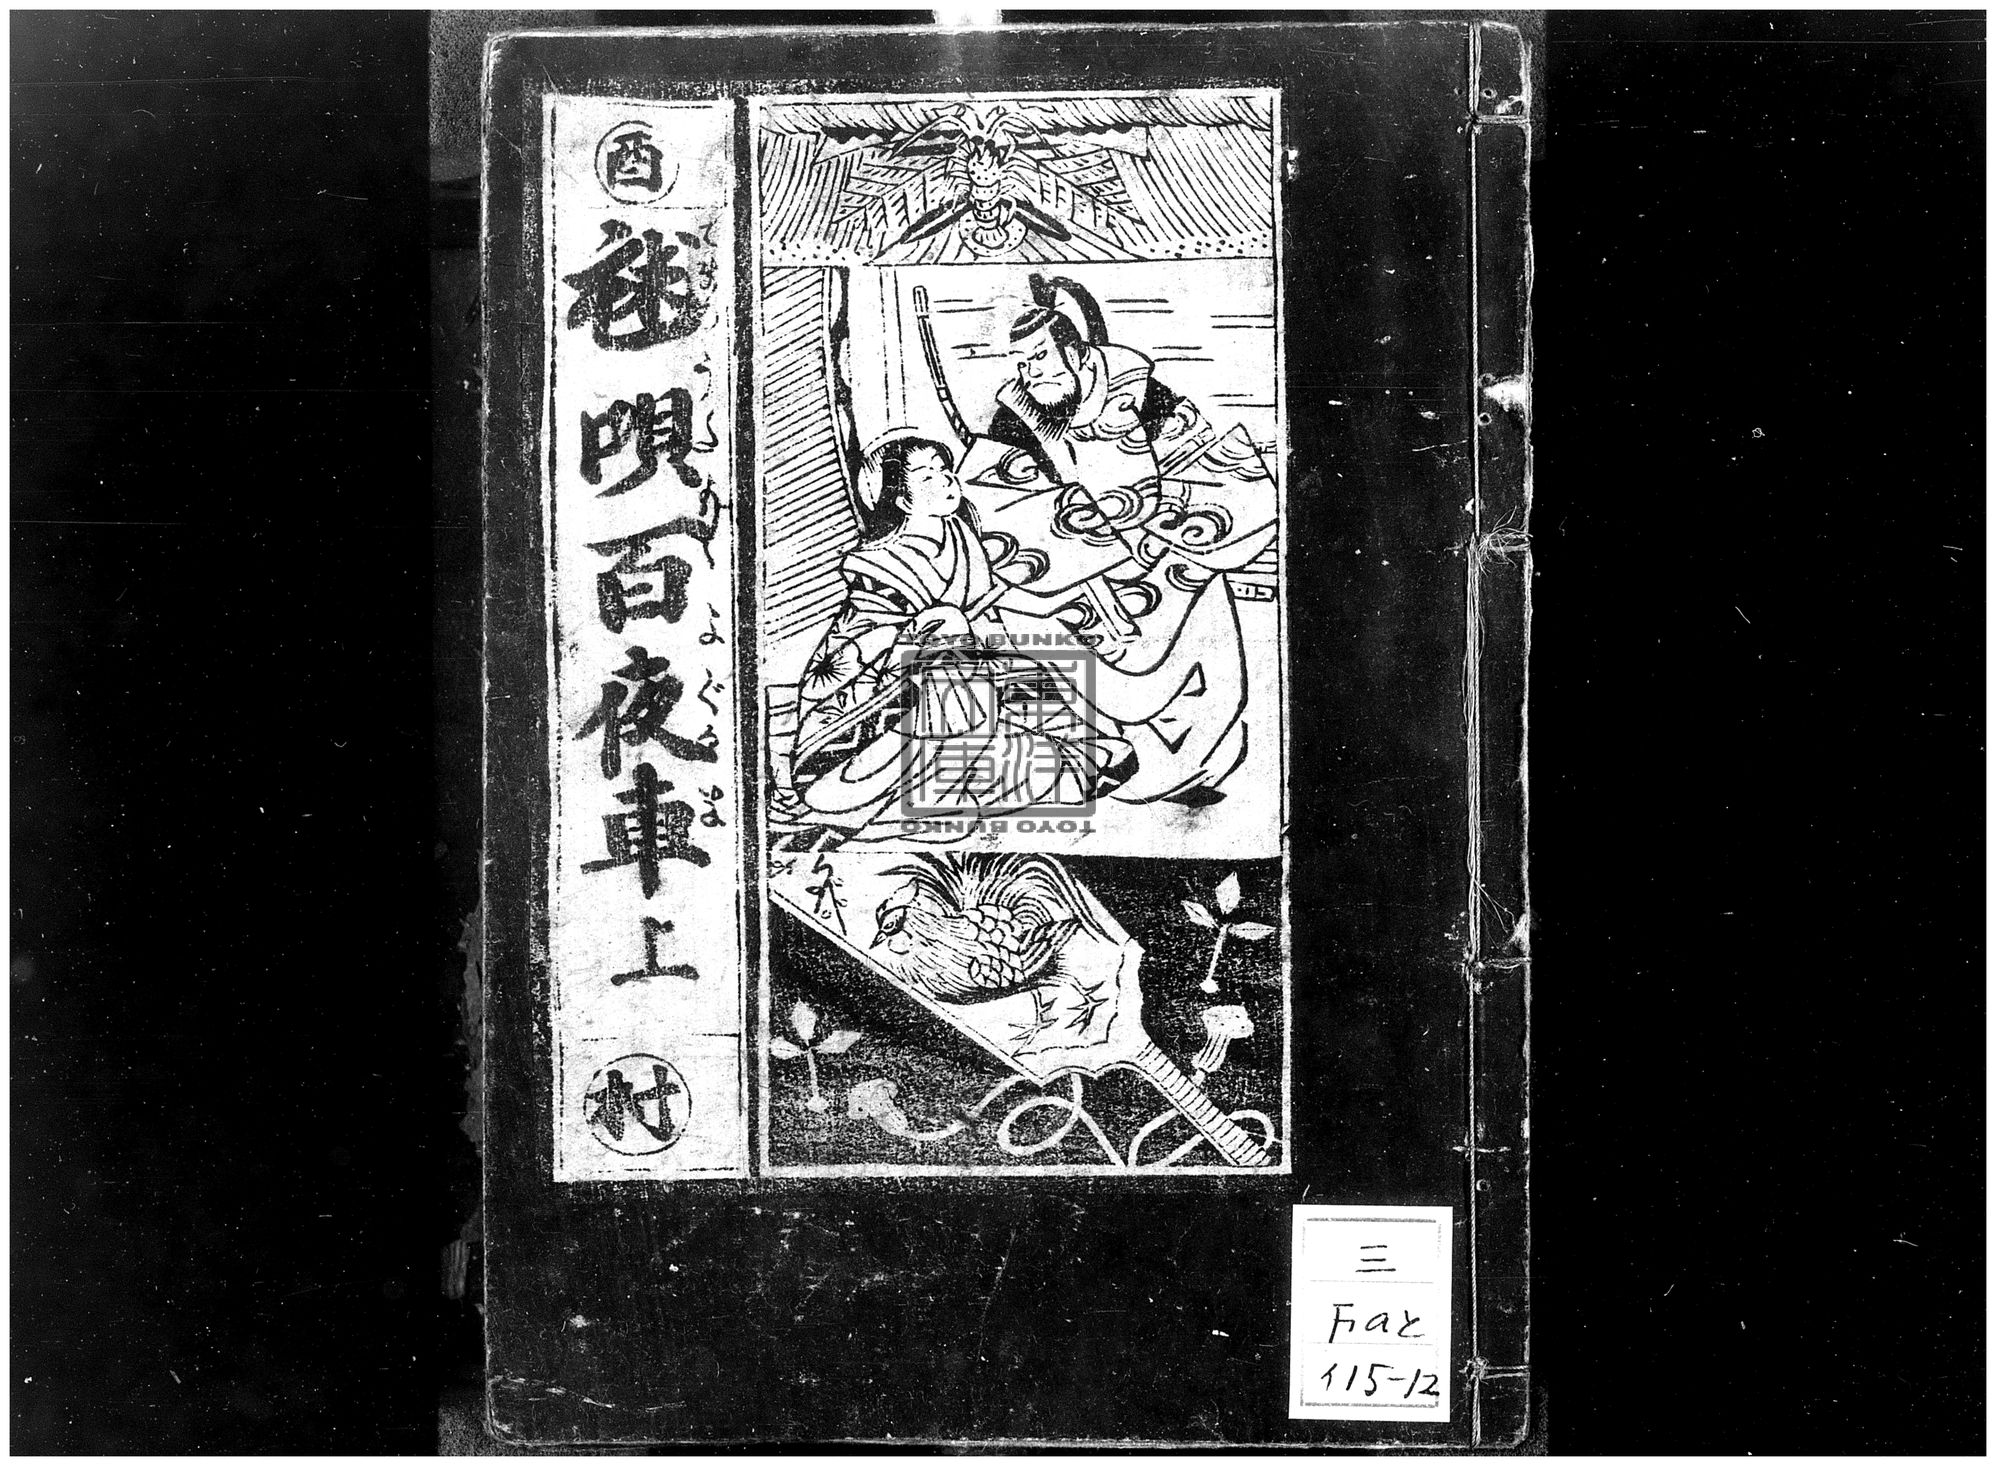 酉
毬唄百夜車 上
てまりうたもゝよぐるま
村
TOYO BUNKO
東洋
文庫
TOYO BUNKO
三
Fiaと
イ15-12